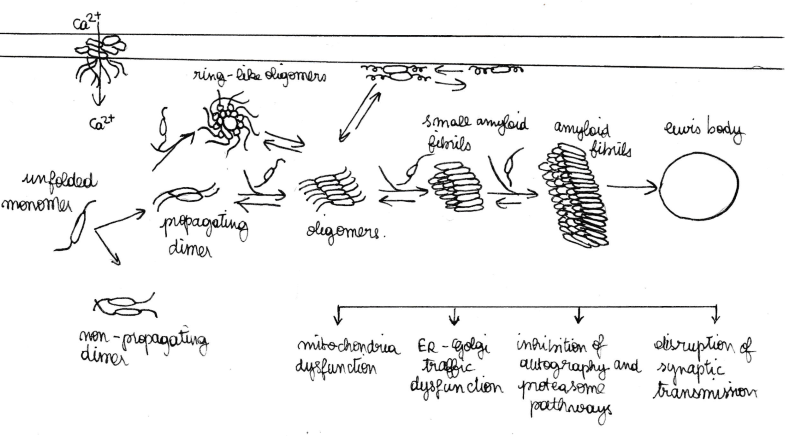 Ca²⁺
Ca²⁺
ring-like oligomers
small amyloid
fibrils
amyloid
fibrils
lewis body
unfolded
monomer
propagating
dimer
oligomers.
non-propagating
dimer
mitochondria
dysfunction
ER-Golgi
traffic
dysfunction
inhibition of
autography and
proteasome
pathways
disruption of
synaptic
transmission